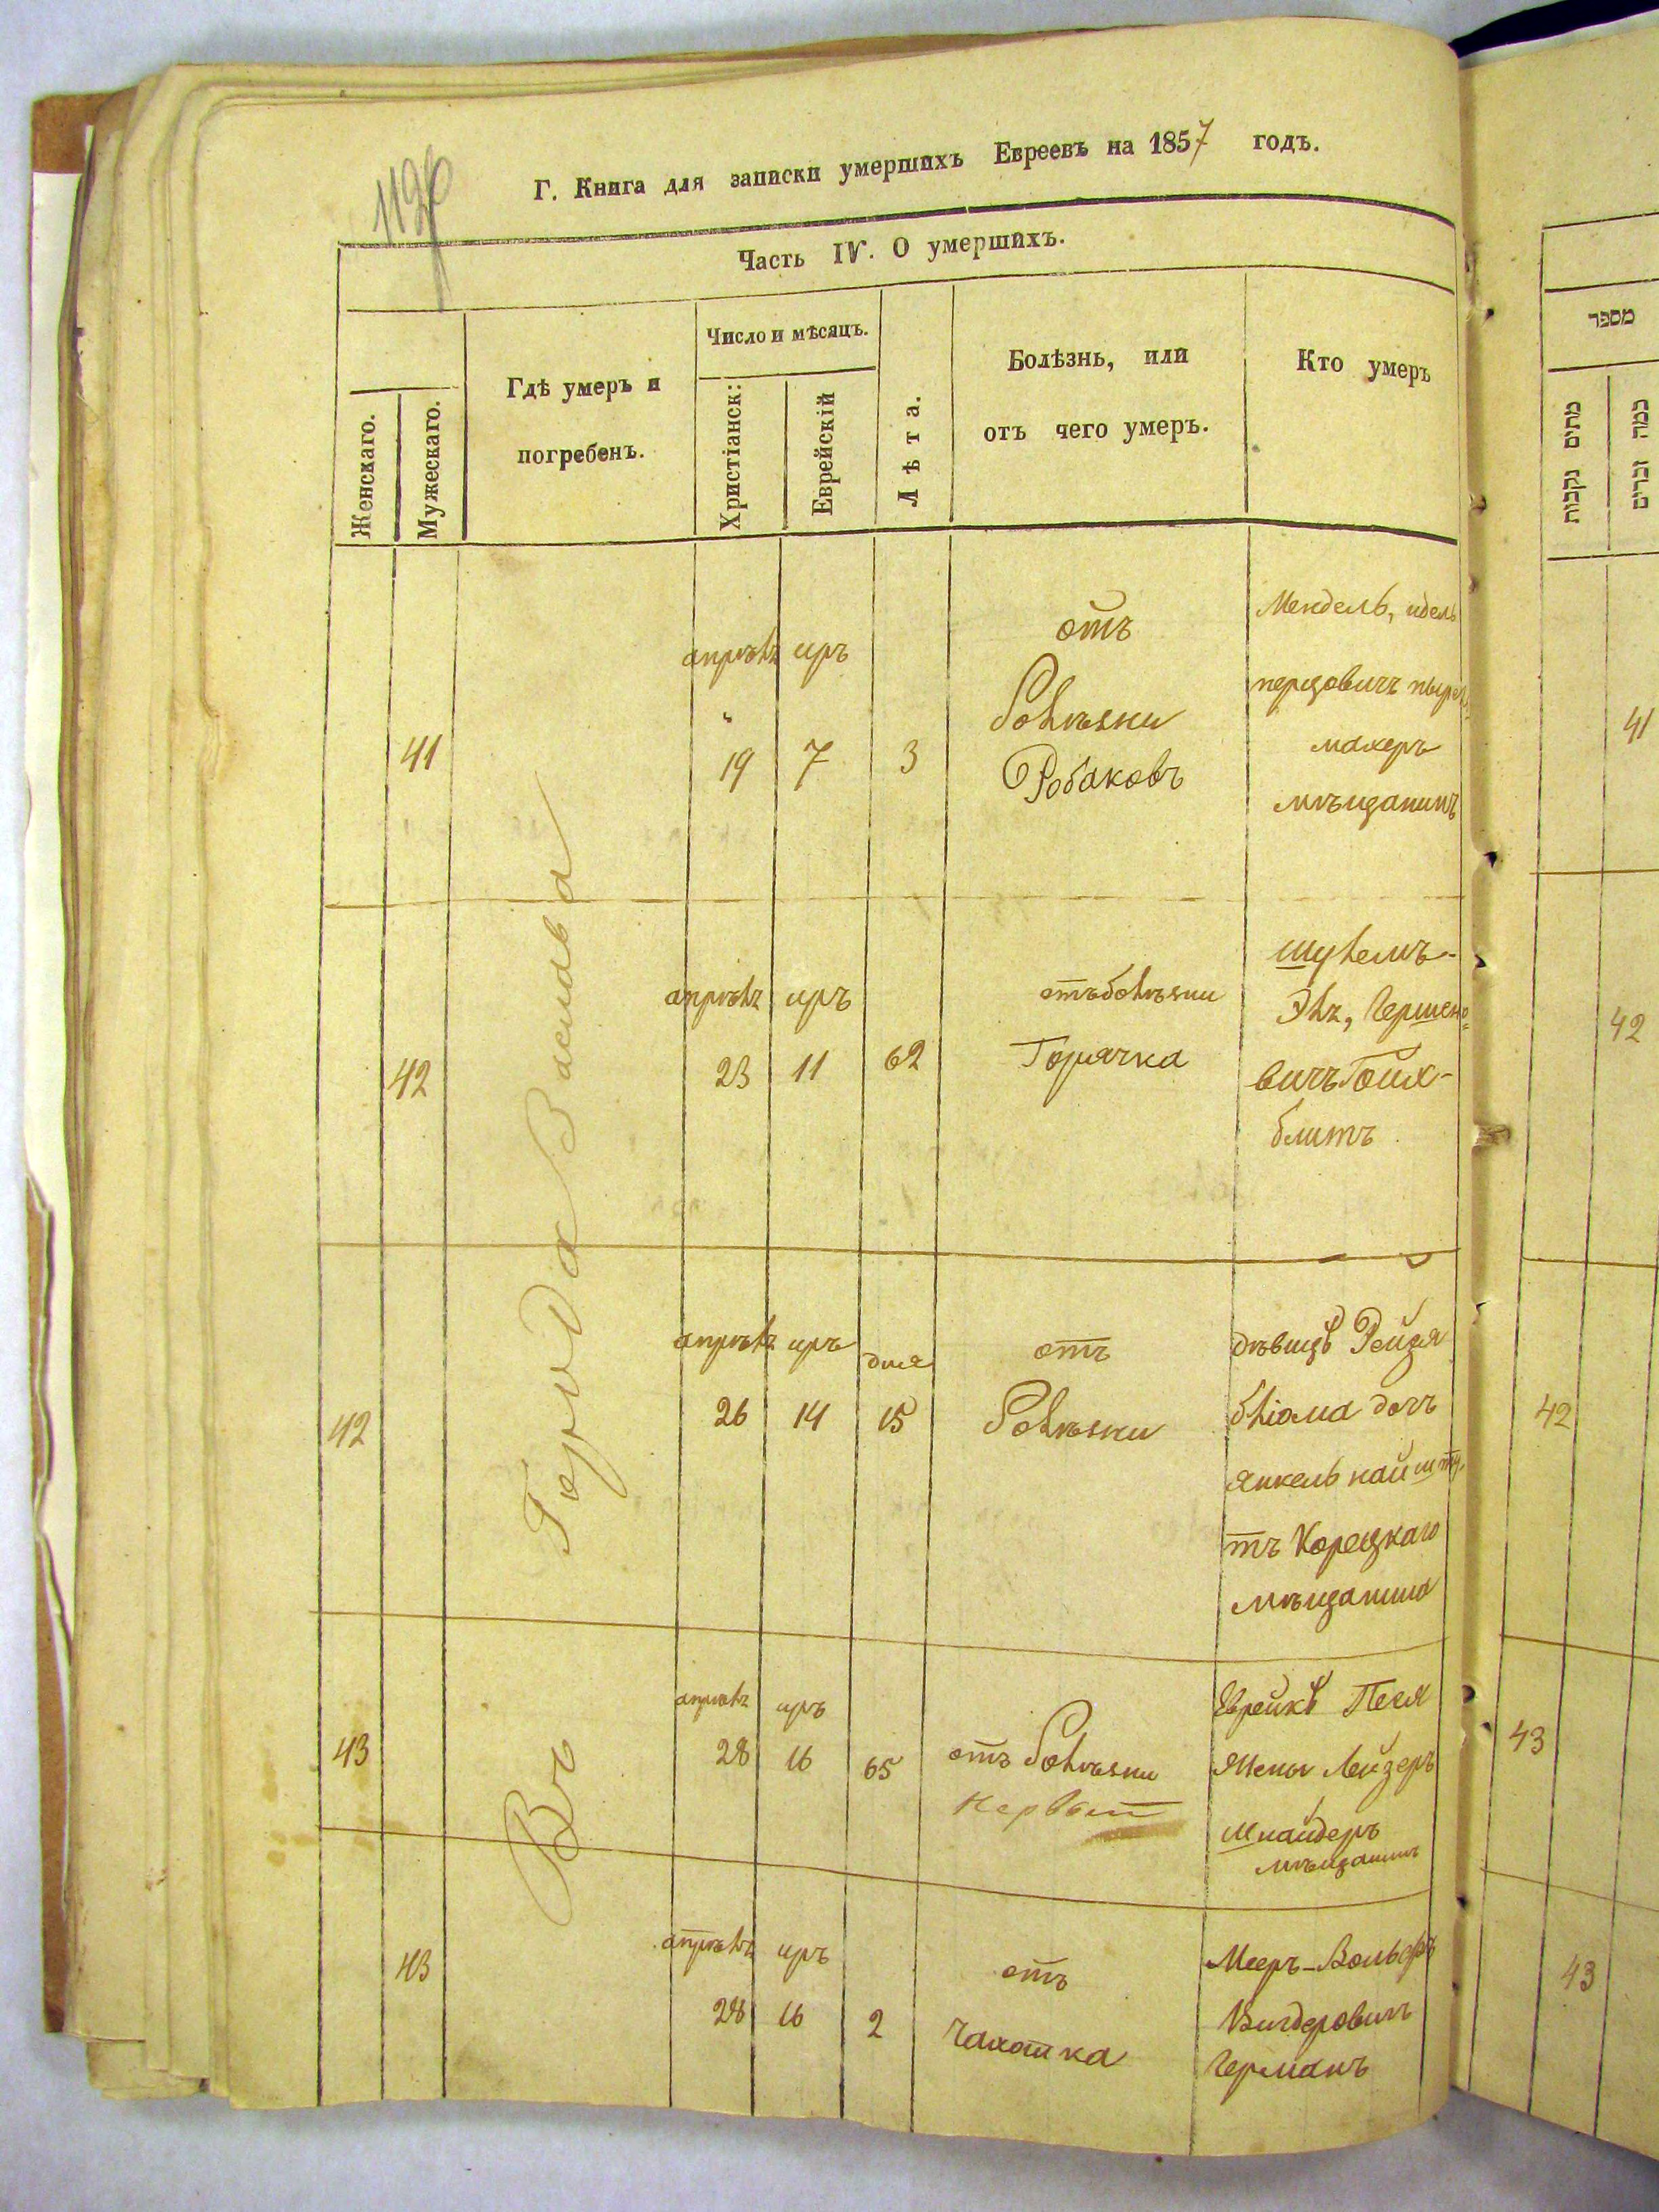 Г. Книга для записки умершихъ Евреевъ на 1857 годъ.
Часть IV. О умершихъ.
Женскаго.
Мужескаго.
Гдѣ умеръ и
погребенъ.
Число и мѣсяцъ.
Христіанск:
Еврейскій
Лѣта.
Болѣзнь, или
отъ чего умеръ.
Кто умеръ
Въ Города Заславѣ
41
апрѣль
19
иръ
7
3
отъ
болѣзни
Робаковъ
Мендель, идель
перцовичъ
махеръ
мѣщанинъ
42
апрѣль
23
иръ
11
62
отъ болѣзни
Горячка
Шулемъ-
Эль, Гершено
вичъ Гойх-
блитъ
42
апрѣль
26
иръ
14
дня
15
отъ
болѣзни
дѣвицѣ Рейзя
блюма дочъ
янкель
тъ Корецкаго
мѣщанина
43
апрѣль
28
иръ
16
65
отъ болѣзни
Нервы
Еврейкѣ Песя
Жены Лейзеръ
Шнайдеръ
мѣщанинъ
43
апрѣль
28
иръ
16
2
отъ
чахотка
Мееръ-Вольфъ
Вигдеровичъ
Германъ
מספר
מתים נקבות
כמה זכרים
41
42
42
43
43